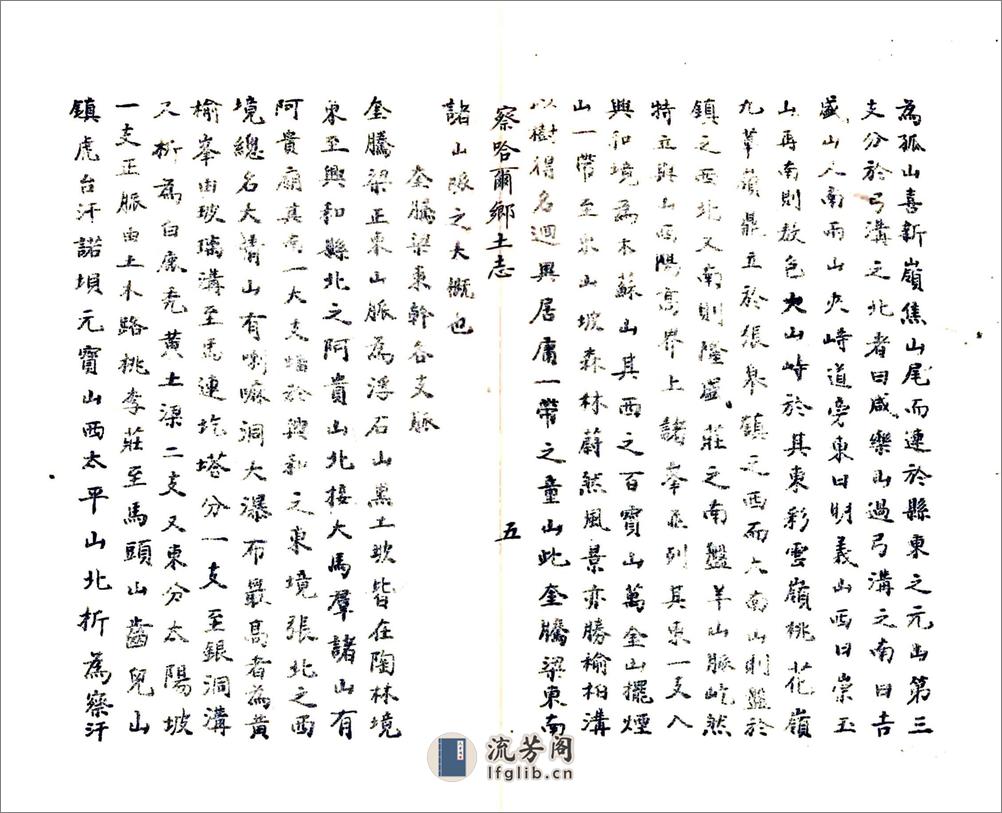 為孤山喜新嶺焦山尾而連於縣東之元山第三
支分於弓溝之北者曰咸樂山過弓溝之南曰吉
盛山又南兩山夾峙道旁東曰明義山西曰崇玉
山再南則放色火山峙於其東彩雲嶺桃花嶺
九華嶺鼎立於張皋鎮之西而大南山則盤於
鎮之西北又南則隆盛莊之南盤羊山脈屹然
特立與山西陽高界上諸峯並列其東一支入
興和境為木蘇山其西之百寶山萬金山擺煙
山一帶至東山坡森林蔚然風景亦勝榆柏溝
以樹得名迥異居庸一帶之童山此奎騰梁東南
諸山脈之大概也
奎騰梁東幹各支脈
奎騰梁正東山脈為浮石山黑土坡皆在陶林境
東至興和縣北之阿貴山北接大馬羣諸山有
阿貴廟其南一大支蟠於興和之東境張北之西
境總名大青山有喇嘛洞大瀑布最高者為黃
榆峯由玻璃溝至馬連圪塔分一支至銀洞溝
又折為白鹿禿黃土梁二支又東分太陽坡
一支正脈由土木路桃李莊至馬頭山齒兒山
鎮虎台汗諾垻元寶山西太平山北折為察汗
察哈爾鄉土志
五
流芳阁
lfglib.cn